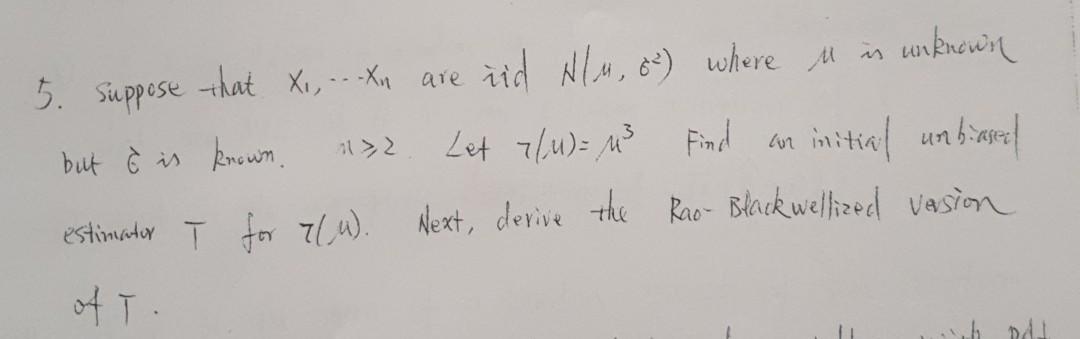 5. Suppose that X₁, ⋯Xₙ are iid N(μ, σ²) where μ is unknown
but σ is known. n ≥ 2. Let τ(μ) = μ³ Find an initial unbiased
estimator T for τ(μ). Next, derive the Rao-Blackwellized version
of T.